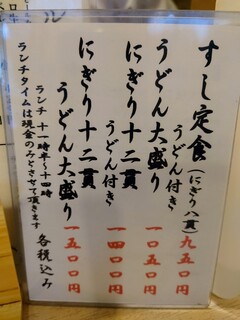 すし定食(にぎり八貫)
うどん付き 九五〇円
うどん大盛り 一〇五〇円
にぎり十二貫
うどん付き 一四〇〇円
にぎり十二貫
うどん大盛り 一五〇〇円
各税込み
ランチ 十一時半〜十四時
ランチタイムは現金のみとさせて頂きます